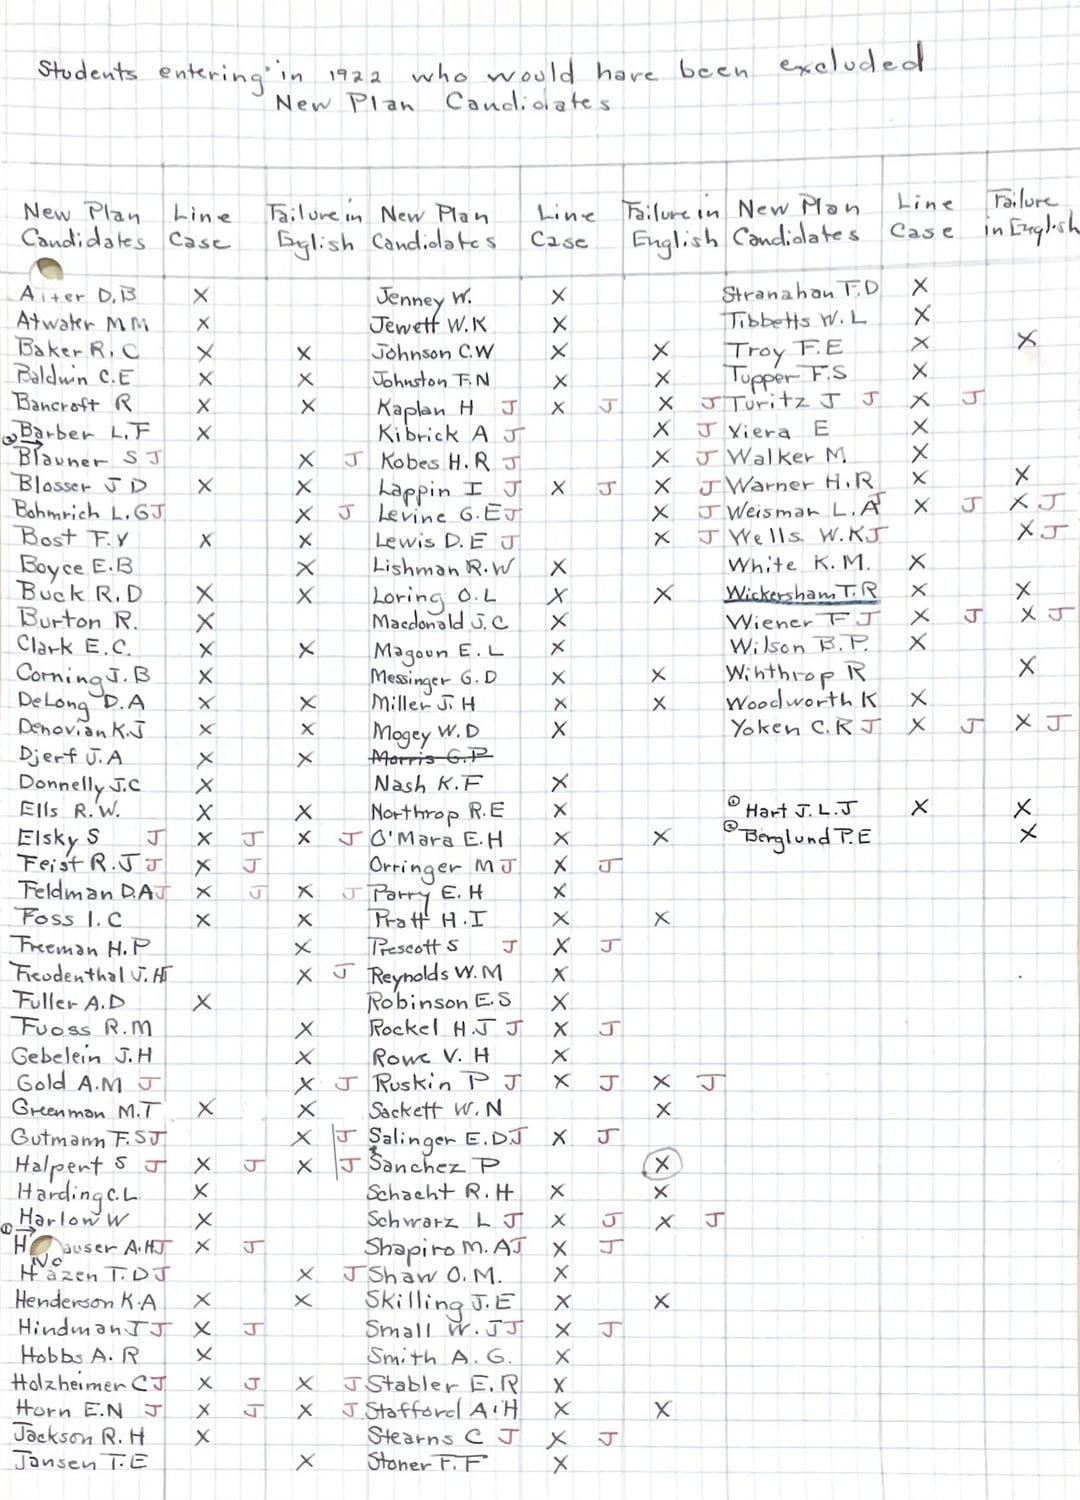 Students entering in 1922 who would have been excluded
New Plan Candidates
New Plan Candidates Line Case Failure in English New Plan Candidates Line Case Failure in English New Plan Candidates Line Case Failure in English
Aiter D.B X Jenney W. X Stranahan F.D X
Atwater M M X Jewett W.K X Tibbetts W.L X
Baker R.C X X Johnson C.W X X Troy F.E X X
Baldwin C.E X X Johnston F.N X X Tupper F.S X
Bancroft R X X Kaplan H J X J X J Turitz J J X J
② Barber L.F X Kibrick A J X J Viera E X
Blauner S J X J Kobes H.R J X J Walker M. X
Blosser J D X X Lappin I J X J X J Warner H.R X X
Bohmrich L.G J X J Levine G.E J X J Weisman L.A J X J X J
Bost F.V X X Lewis D.E J X J Wells W.K J X J
Boyce E.B X Lishman R.W X White K.M. X
Buck R.D X X Loring O.L X X Wickersham T.R X X
Burton R. X Macdonald J.C X Wiener F J X J X J
Clark E.C. X X Magoun E.L X Wilson B.P. X
Corning J.B X Messinger G.D X X Winthrop R X
DeLong D.A X X Miller J.H X X Woodworth K X
Denovian K.J X X Mogey W.D X Yoken C.R J X J X J
Djerf J.A X X Morris G.P
Donnelly J.C X Nash K.F X
Ells R.W. X X Northrop R.E X ① Hart J.L.J X X
Elsky S J X J X J O'Mara E.H X X ② Berglund P.E X
Feist R.J J X J Orringer M J X J
Feldman D.A J X J X J Parry E.H X
Foss I.C X X Pratt H.I X X
Freeman H.P X Prescott S J X J
Freudenthal J.H J X J Reynolds W.M X
Fuller A.D X Robinson E.S X
Fuoss R.M X Rockel H.J J X J
Gebelein J.H X Rowe V.H X
Gold A.M J X J Ruskin P J X J X J
Greenman M.T X X Sackett W.N X
Gutmann F.S J X J Salinger E.D J X J
Halpert S J X J X J Sanchez P X
Harding C.L. X Schacht R.H X X
① Harlow W X Schwarz L J X J X J
H auser A.H J X J Shapiro M.A J X J
No
Hazen T.D J X J Shaw O.M. X
Henderson K.A X X Skilling J.E X X
Hindman J J X J Small W.J J X J
Hobbs A.R X Smith A.G. X
Holzheimer C J X J X J Stabler E.R X
Horn E.N J X J X J Stafford A.H X X
Jackson R.H X Stearns C J X J
Jansen T.E X Stoner F.F X